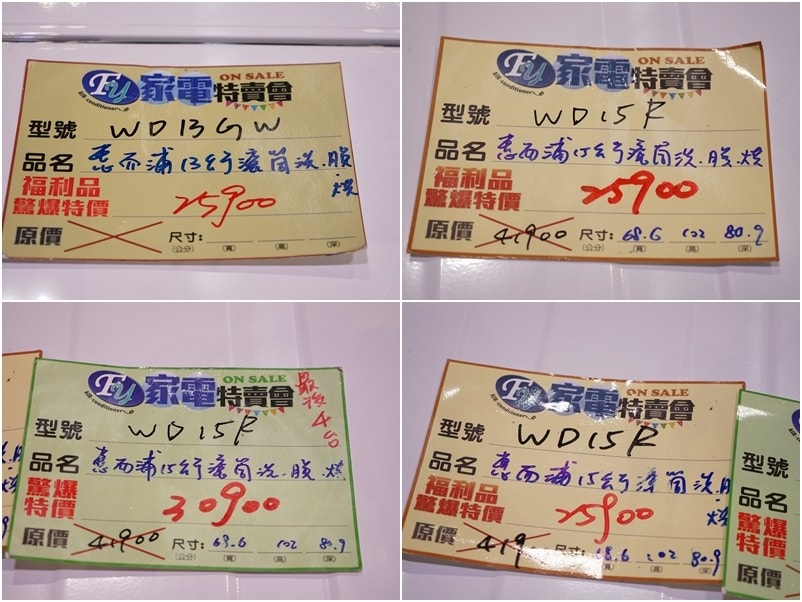 FU 家電特賣會 ON SALE
Air conditioner
型號 WD13GW
品名 惠而浦13公斤滾筒洗.脫.烘
福利品
驚爆特價 25900
原價 尺寸:
(公分) (寬) (高) (深)
FU 家電特賣會 ON SALE
Air conditioner
型號 WD15R
品名 惠而浦15公斤滾筒洗.脫.烘
福利品
驚爆特價 25900
原價 41900 尺寸: 68.6 102 80.9
(公分) (寬) (高) (深)
FU 家電特賣會 ON SALE
Air conditioner
最後4台
型號 WD15R
品名 惠而浦15公斤滾筒洗.脫.烘
驚爆
特價 30900
原價 41900 尺寸: 68.6 102 80.9
(公分) (寬) (高) (深)
FU 家電特賣會 ON SALE
Air conditioner
型號 WD15R
品名 惠而浦15公斤滾筒洗.脫.烘
福利品
驚爆特價 25900
原價 419 尺寸: 68.6 102 80.9
(公分) (寬) (高) (深)
型號
品名
驚爆
特價
原價